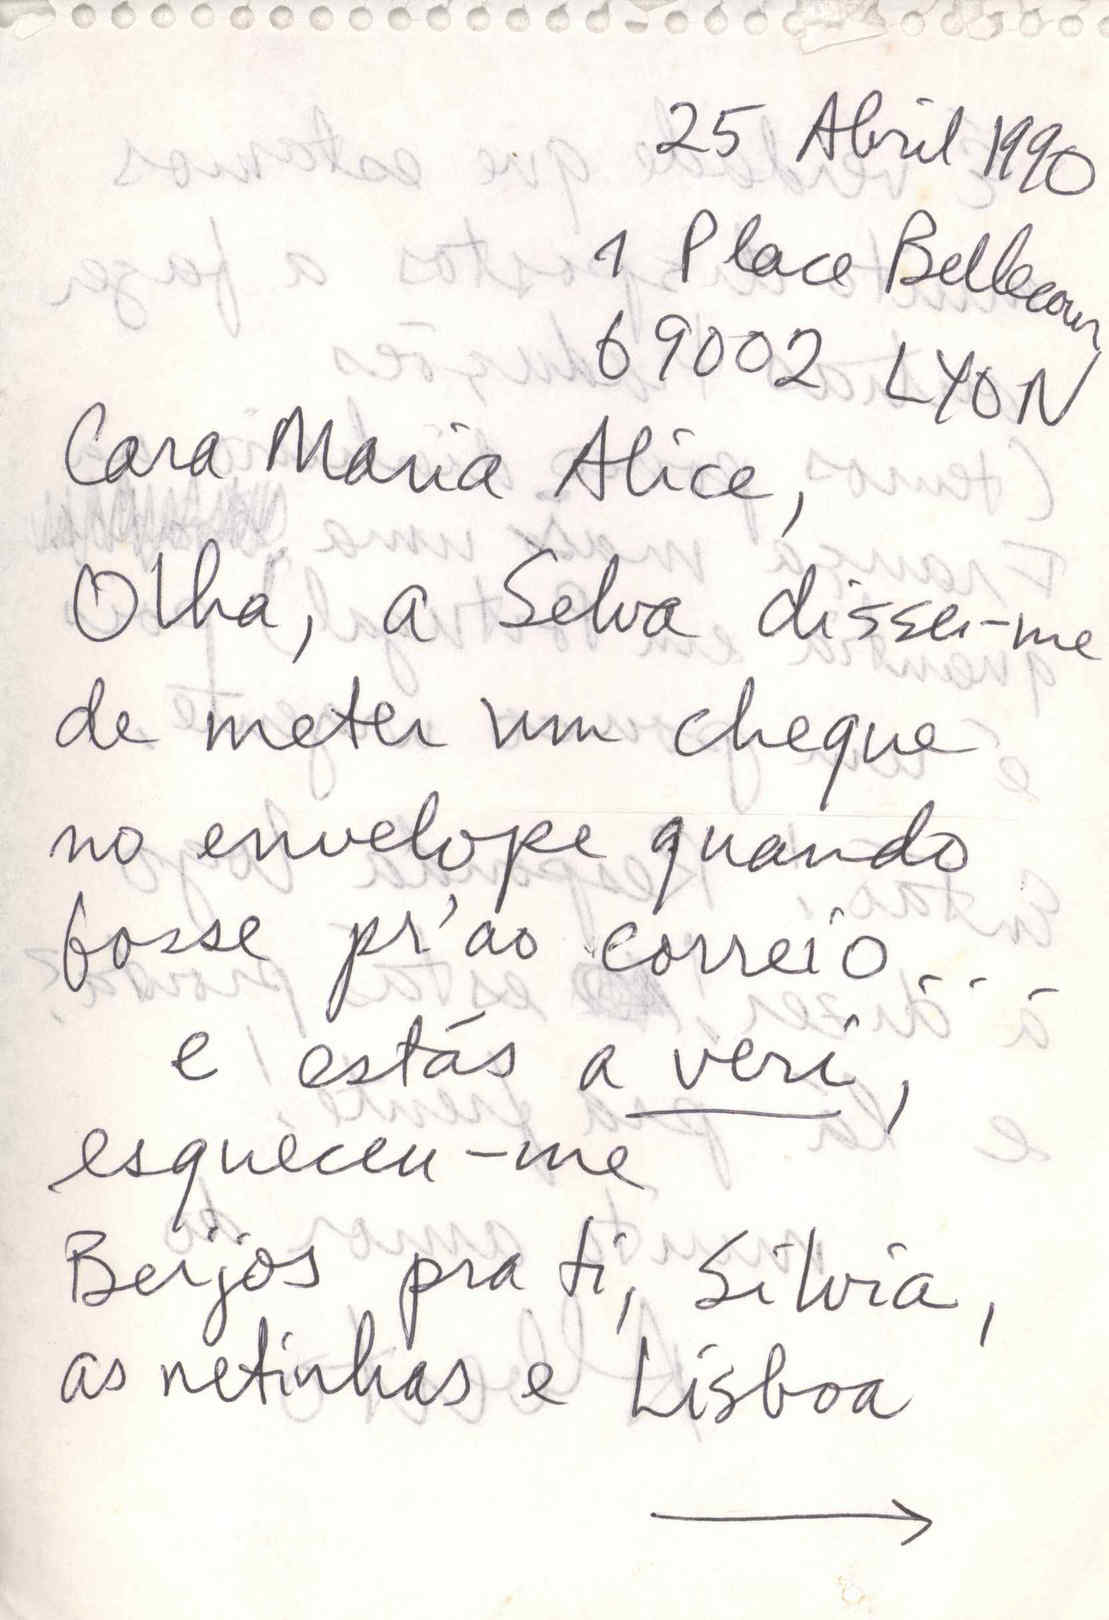 25 Abril 1990
1 Place Bellecour
69002 LYON
Cara Maria Alice,
Olha, a Selva disse-me
de meter um cheque
no envelope quando
fosse pr'ao correio...
e estás a veri,
esqueceu-me
Beijos pra ti, Silvia,
as netinhas e Lisboa
→